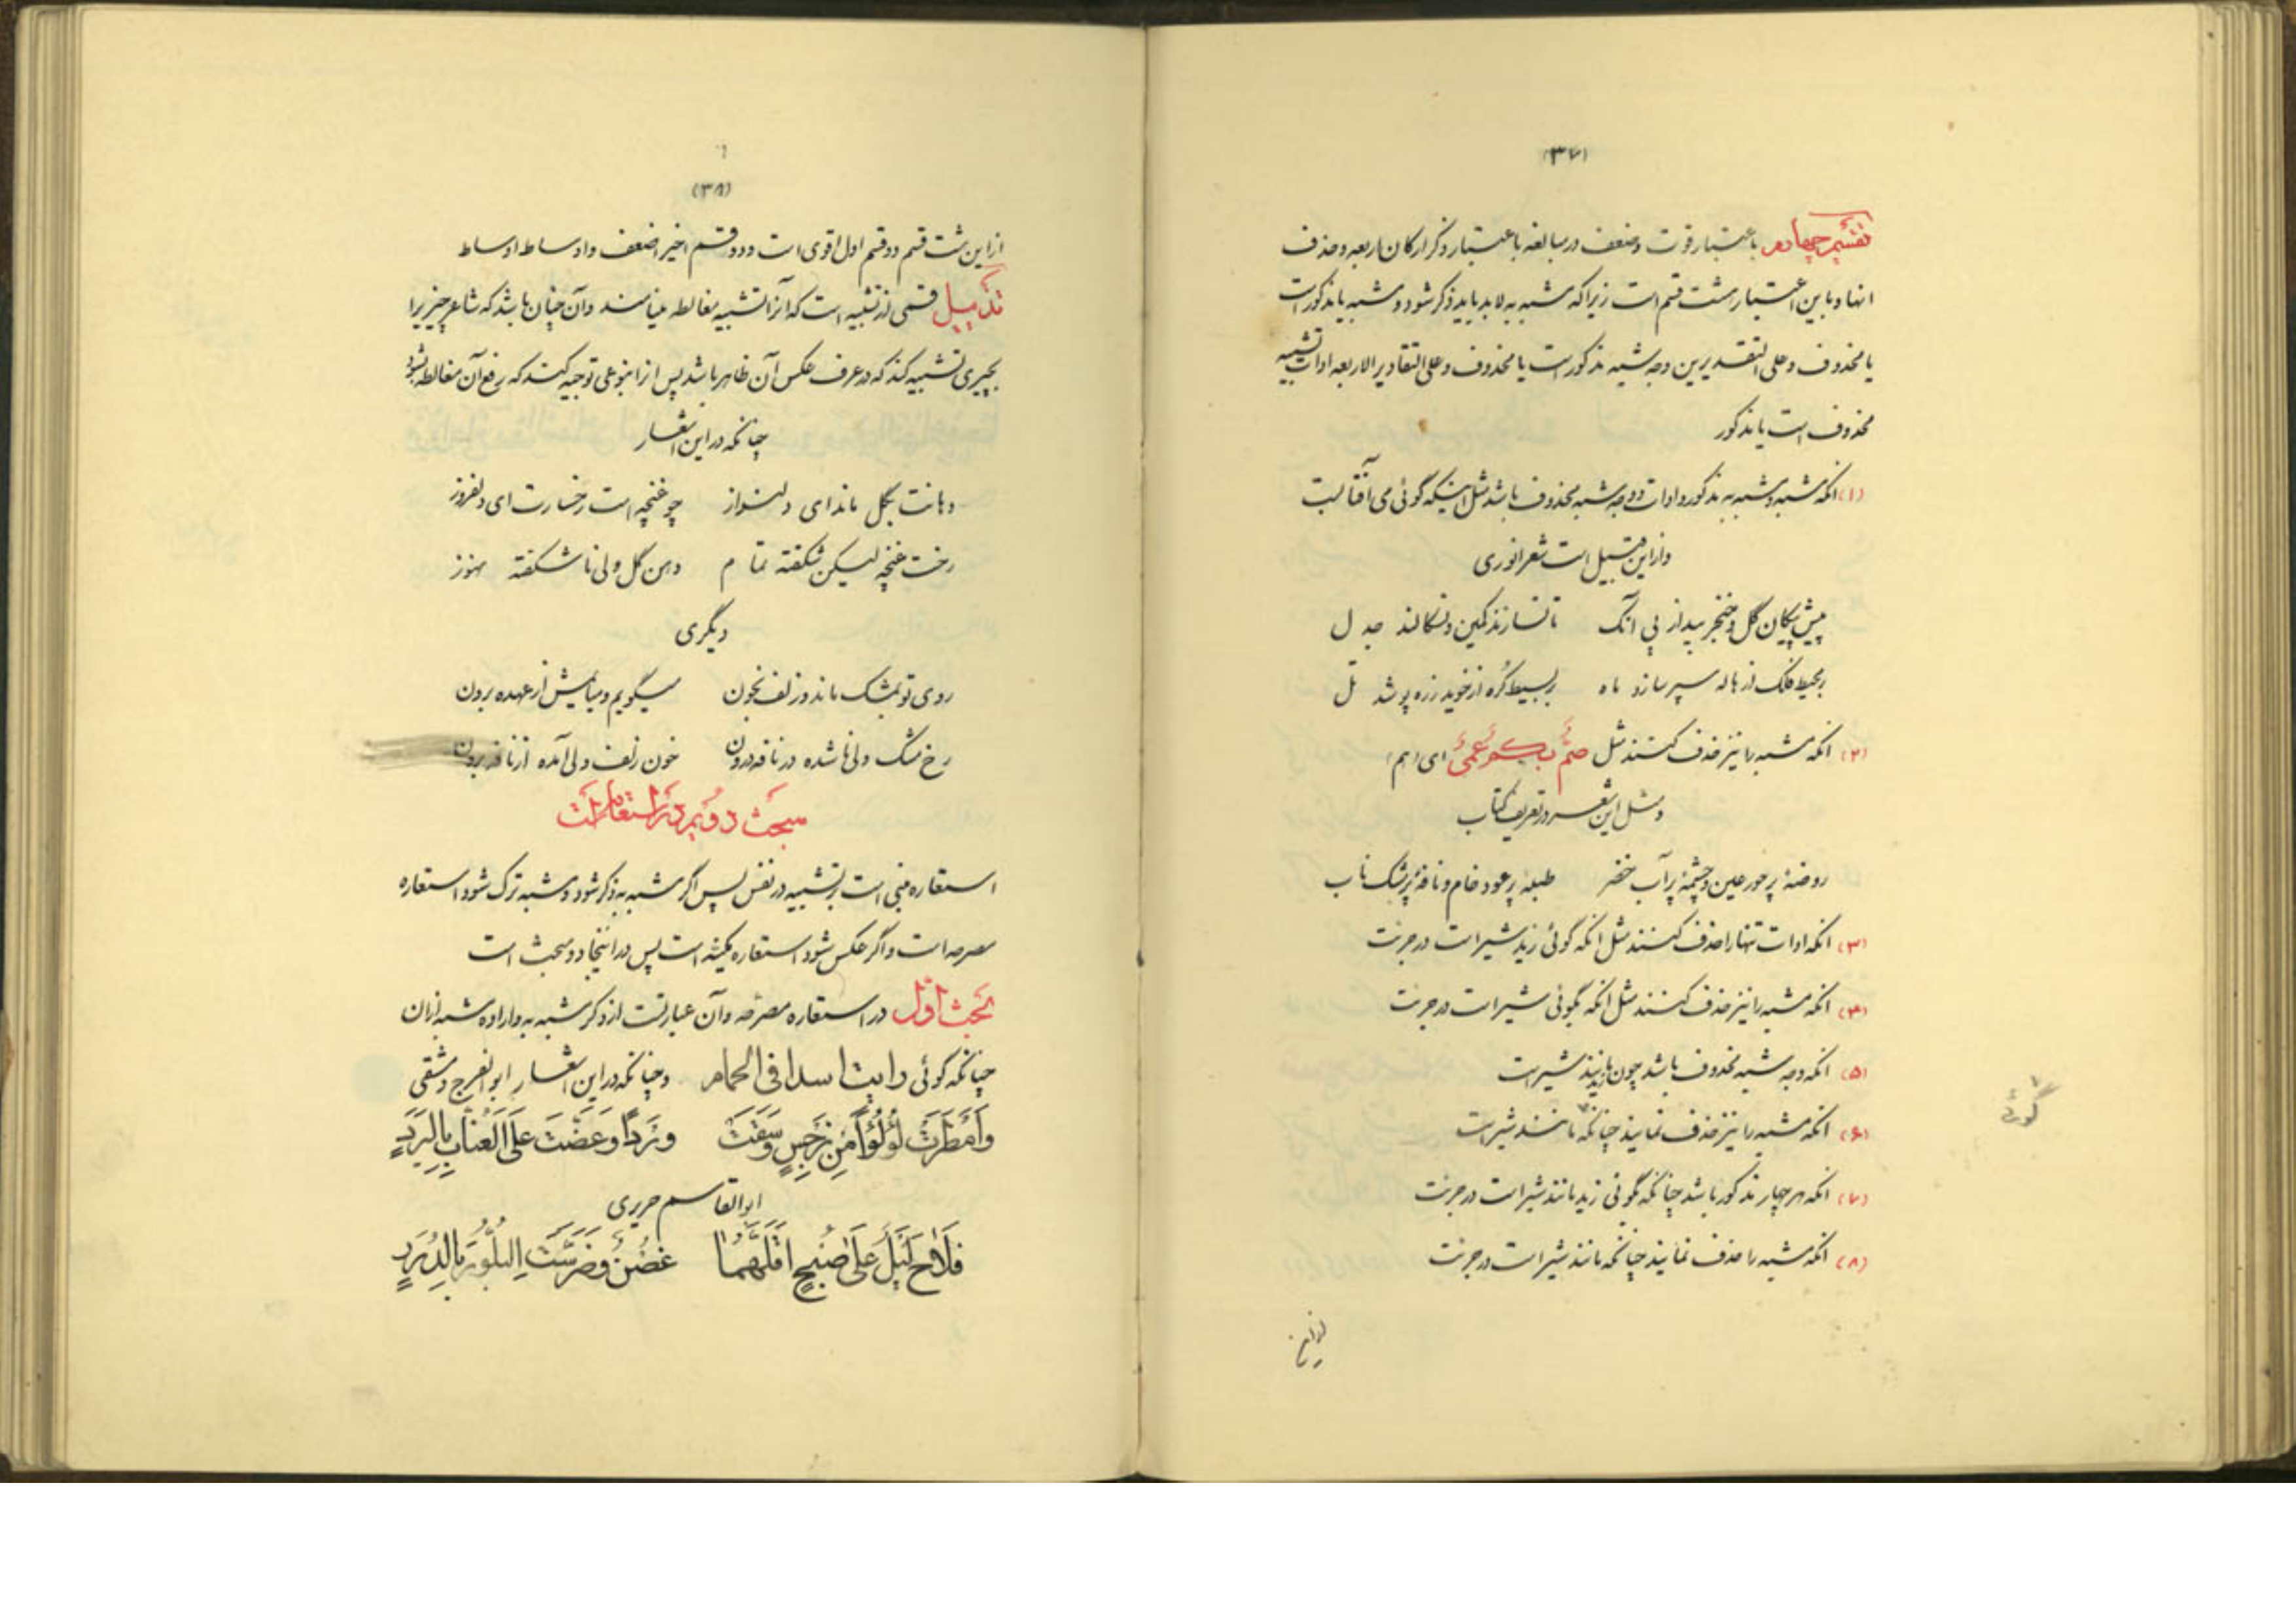 (۳۷)
تقسیم چهارم باعتبار قوت و ضعف در مبالغه باعتبار ذکر ارکان اربعه و حذف
انها و باین اعتبار هشت قسم است زیرا که مشبه به لابد باید ذکر شود و مشبه یا مذکور است
یا محذوف و علی التقدیرین وجه شبه مذکور است یا محذوف و علی التقادیر الاربعه ادات تشبیه
محذوف است یا مذکور
(۱) انکه مشبه و مشبه به مذکور و ادات و وجه شبه محذوف باشد مثل اینکه گوئی می آفتابست
و از این قبیل است شعر انوری
پیش پیکان گل و خنجر بید از پی آنک تا نسازند کمین و نسکالند جدل
بر محیط فلک از هاله سپر سازد ماه بر بسیط کره از خوید زره پوشد تل
(۲) انکه مشبه را نیز حذف کنند مثل صُمٌّ بُکمٌ عُمیٌ ای (هم)
و مثل این شعر در تعریف کتاب
روضهٔ پر حور عین و چشمهٔ پر آب خضر طبلهٔ پر عود خام و نافهٔ پر مشک ناب
(۳) انکه ادات تنها را حذف کنند مثل انکه گوئی زید شیر است در جرئت
(۴) انکه مشبه را نیز حذف کنند مثل انکه بگوئی شیر است در جرئت
(۵) انکه وجه شبه محذوف باشد چون زید مانند شیر است
(۶) انکه مشبه را نیز حذف نمایند چنانکه مانند شیر است
گوئی
(۷) انکه هر چهار مذکور باشد چنانکه گوئی زید مانند شیر است در جرئت
(۸) انکه مشبه را حذف نمایند چنانکه مانند شیر است در جرئت
از این
(۳۸)
از این هشت قسم دو قسم اول اقوی است و دو قسم اخیر اضعف و اوساط اوساط
تذییل قسمی از تشبیه است که آنرا تشبیه مغالطه مینامند و آن چنان باشد که شاعر چیزیرا
بچیزی تشبیه کند که در عرف عکس آن ظاهر باشد پس از ان بنوعی توجیه کند که رفع آن مغالطه شود
چنانکه در این اشعار
دهانت بگل ماند ای دلنواز چو غنچه است رخسارت ای دلفروز
رخت غنچه لیکن شکفته تمام دهن گل ولی ناشکفته هنوز
دیگری
روی تو بمشک ماند و زلف بخون میگویم و میایمش از عهده برون
رخ مشک ولی نا شده در نافه درون خون زلف ولی آمده از نافه برون
مبحث دویم در استعاره است
استعاره مبنی است بر تشبیه در نفس پس اگر مشبه به ذکر شود و مشبه ترک شود استعاره
مصرحه است و اگر عکس شود استعاره مکنیه است پس در اینجا دو مبحث است
بحث اول در استعاره مصرحه و آن عبارتست از ذکر مشبه به و اراده مشبه از ان
چنانکه گوئی رایت اسدا فی الحمام و چنانکه در این اشعار ابو الفرج دمشقی
وَاَمْطَرَتْ لُؤْلُؤاً مِنْ نَرْجِسٍ وَسَقَتْ وَرْداً وَعَضَّتْ عَلَی الْعُنّابِ بِالْبَرَدِ
ابوالقاسم حریری
فَلاحَ لَیْلٌ عَلی صُبْحٍ اَقَلَّهُما غُصْنٌ وَضَرَّسَتِ الْبَلُّورَ بِالدُّرَرِ